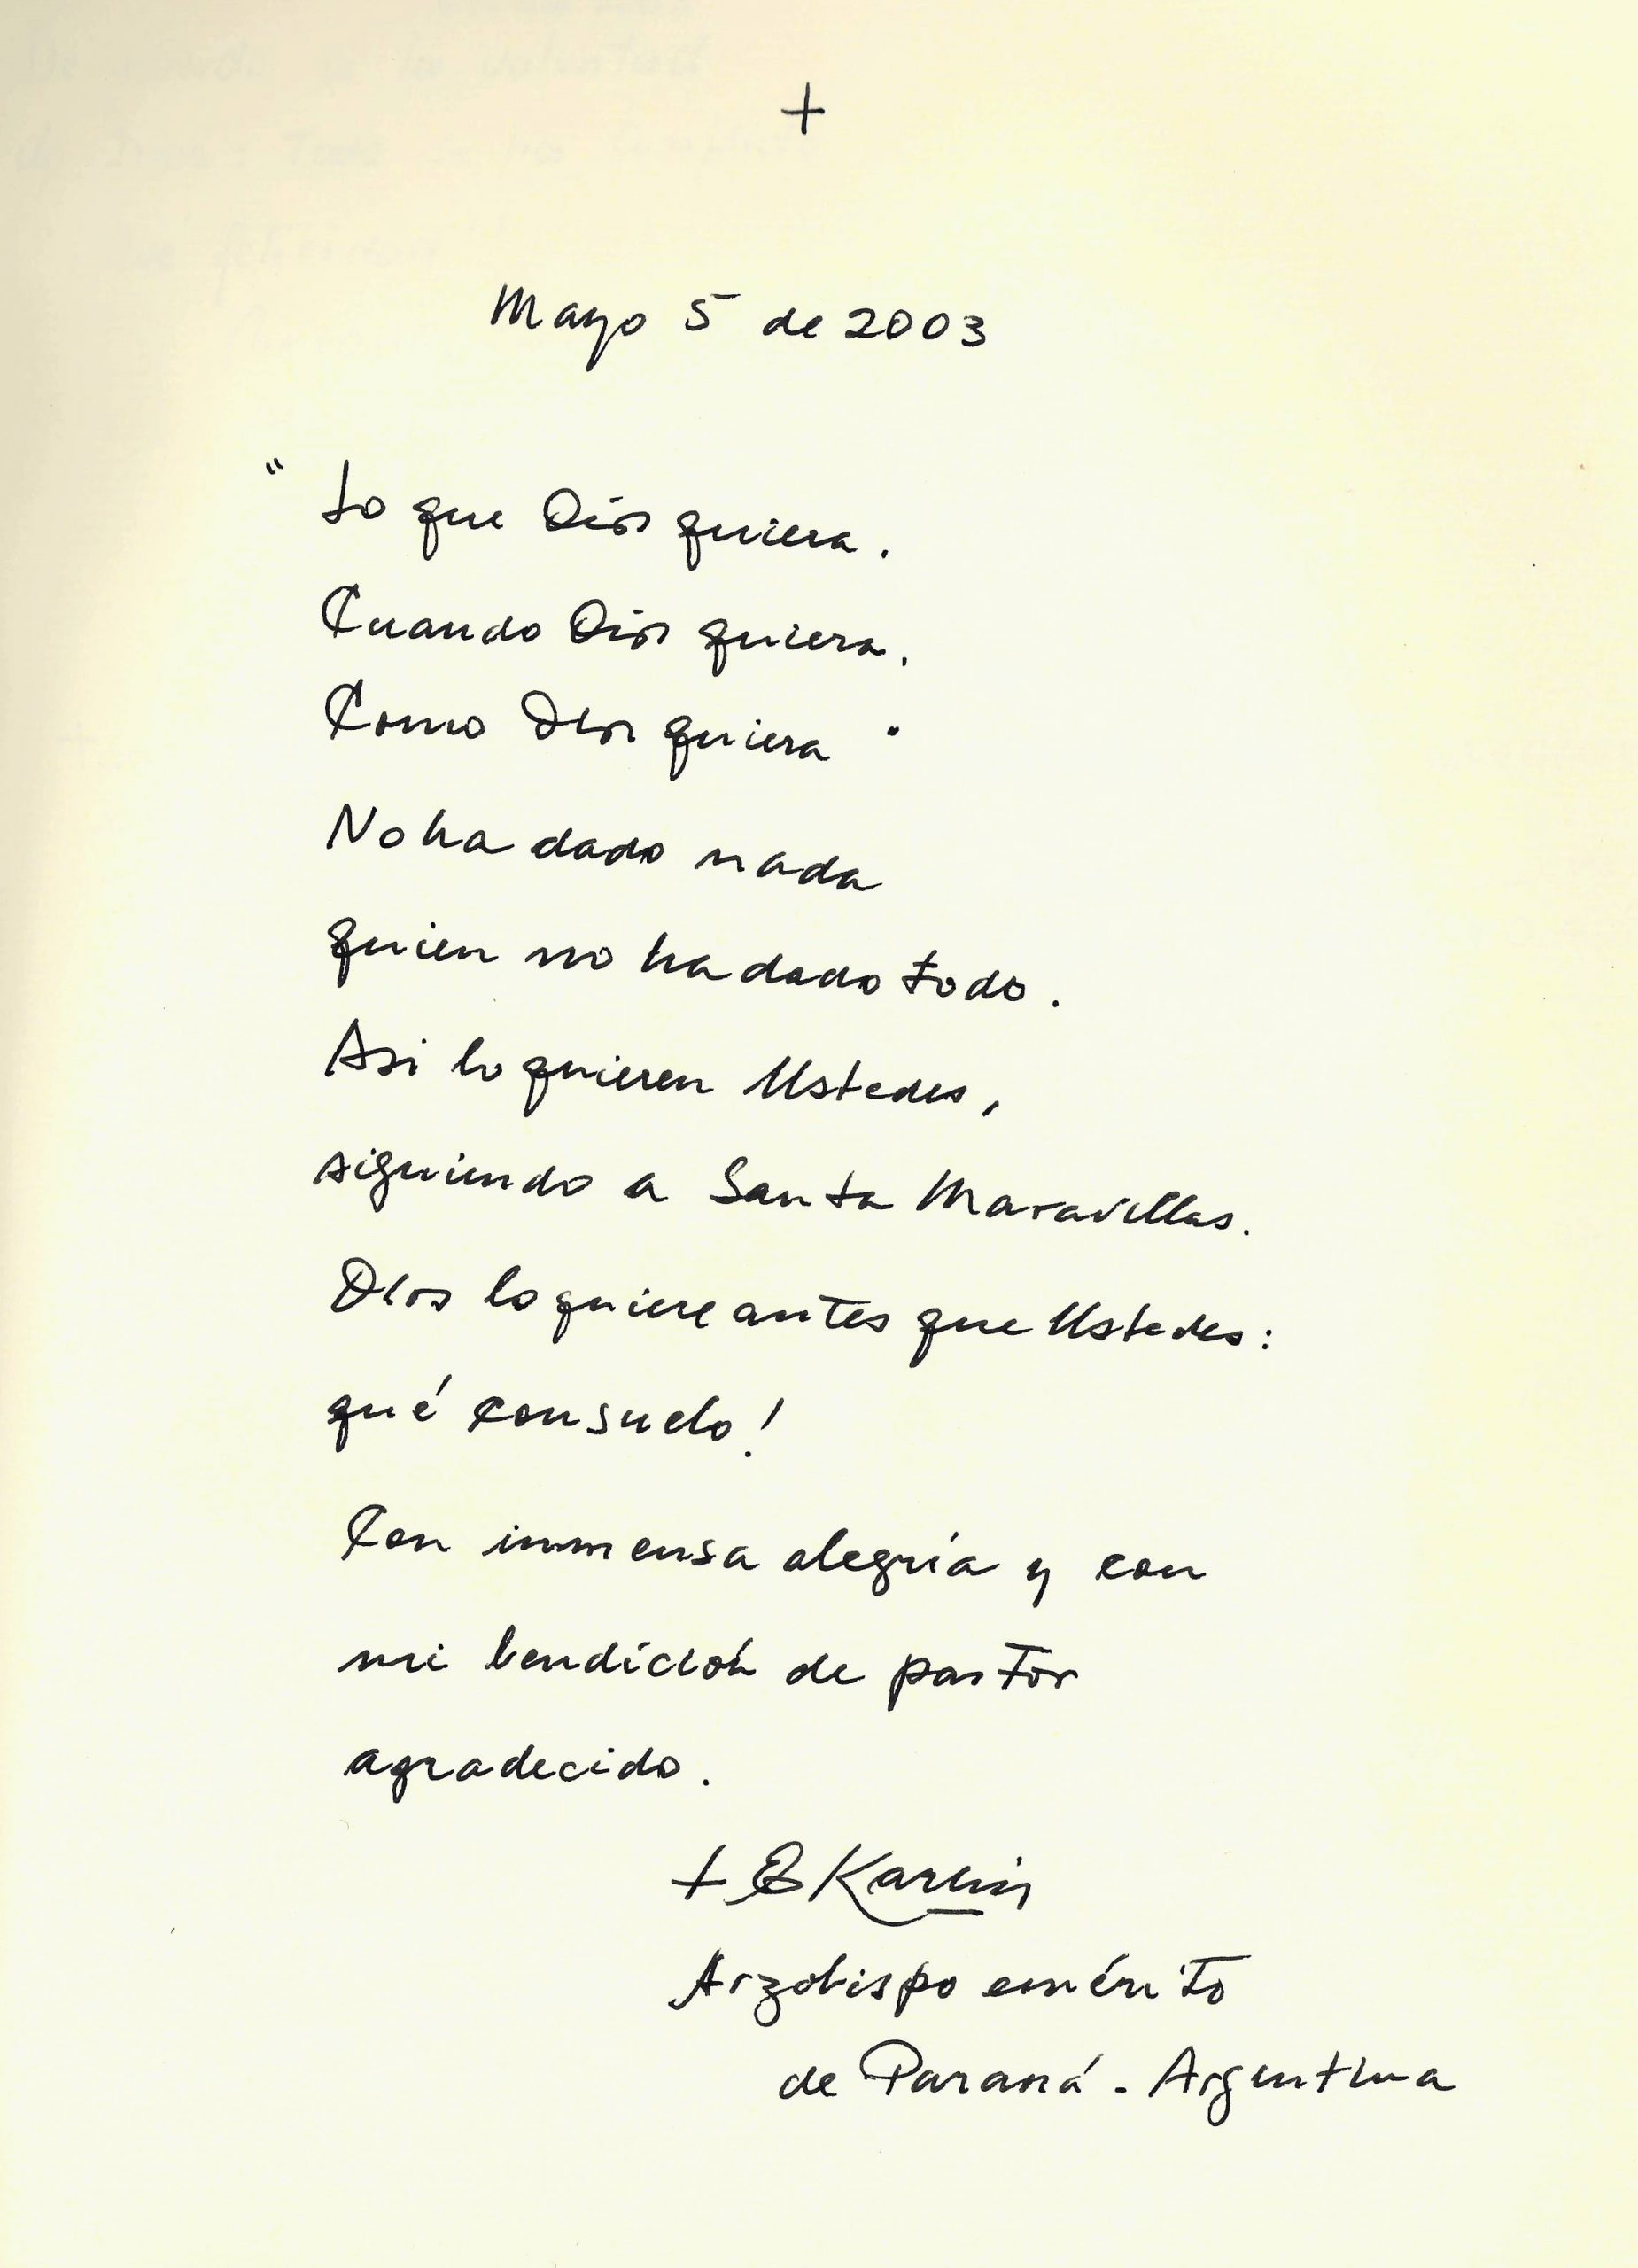 +
Mayo 5 de 2003
" Lo que Dios quiera.
Cuando Dios quiera.
Como Dios quiera "
No ha dado nada
quien no ha dado todo.
Asi lo quieren Ustedes,
siguiendo a Santa Maravillas.
Dios lo quiere antes que Ustedes:
qué consuelo!
Con inmensa alegría y con
mi bendición de pastor
agradecido.
+ E Karlin
Arzobispo emérito
de Paraná - Argentina